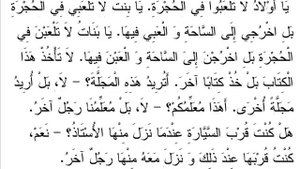 يَا أَوْلَادُ لَا تَلْعَبُوا فِي الْحُجْرَةِ. يَا بِنْتُ لَا تَلْعَبِي فِي الْحُجْرَةِ
بَلِ اخْرُجِي إِلَى السَّاحَةِ وَ الْعَبِي فِيهَا. يَا بَنَاتُ لَا تَلْعَبْنَ فِي
الْحُجْرَةِ بَلِ اخْرُجْنَ إِلَى السَّاحَةِ وَ الْعَبْنَ فِيهَا. لَا تَأْخُذْ هَذَا
الْكِتَابَ بَلْ خُذْ كِتَابًا آخَرَ. أَتُرِيدُ هَذِهِ الْمَجَلَّةَ؟ – لَا، بَلْ أُرِيدُ
مَجَلَّةً أُخْرَى. أَهَذَا مُعَلِّمُكُمْ؟ – لَا، بَلْ مُعَلِّمُنَا رَجُلٌ آخَرُ.
هَلْ كُنْتَ قُرْبَ السَّيَّارَةِ عِنْدَمَا نَزَلَ مِنْهَا الْأُسْتَاذُ؟ – نَعَمْ،
كُنْتُ قُرْبَهَا عِنْدَ ذَلِكَ وَ نَزَلَ مَعَهُ مِنْهَا رَجُلٌ آخَرُ.